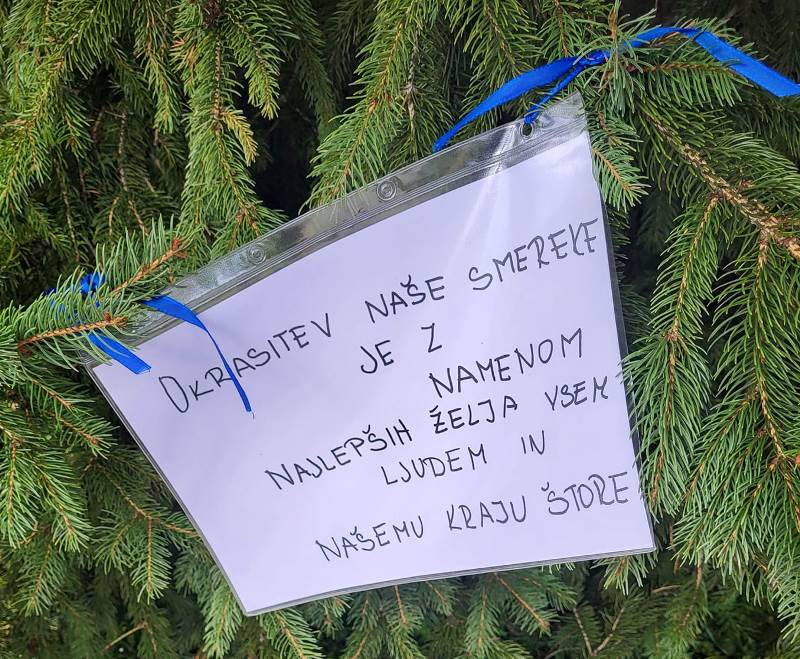 OKRASITEV NAŠE SMEREKE
JE Z
NAMENOM
NAJLEPŠIH ŽELJA VSEM
LJUDEM IN
NAŠEMU KRAJU ŠTORE